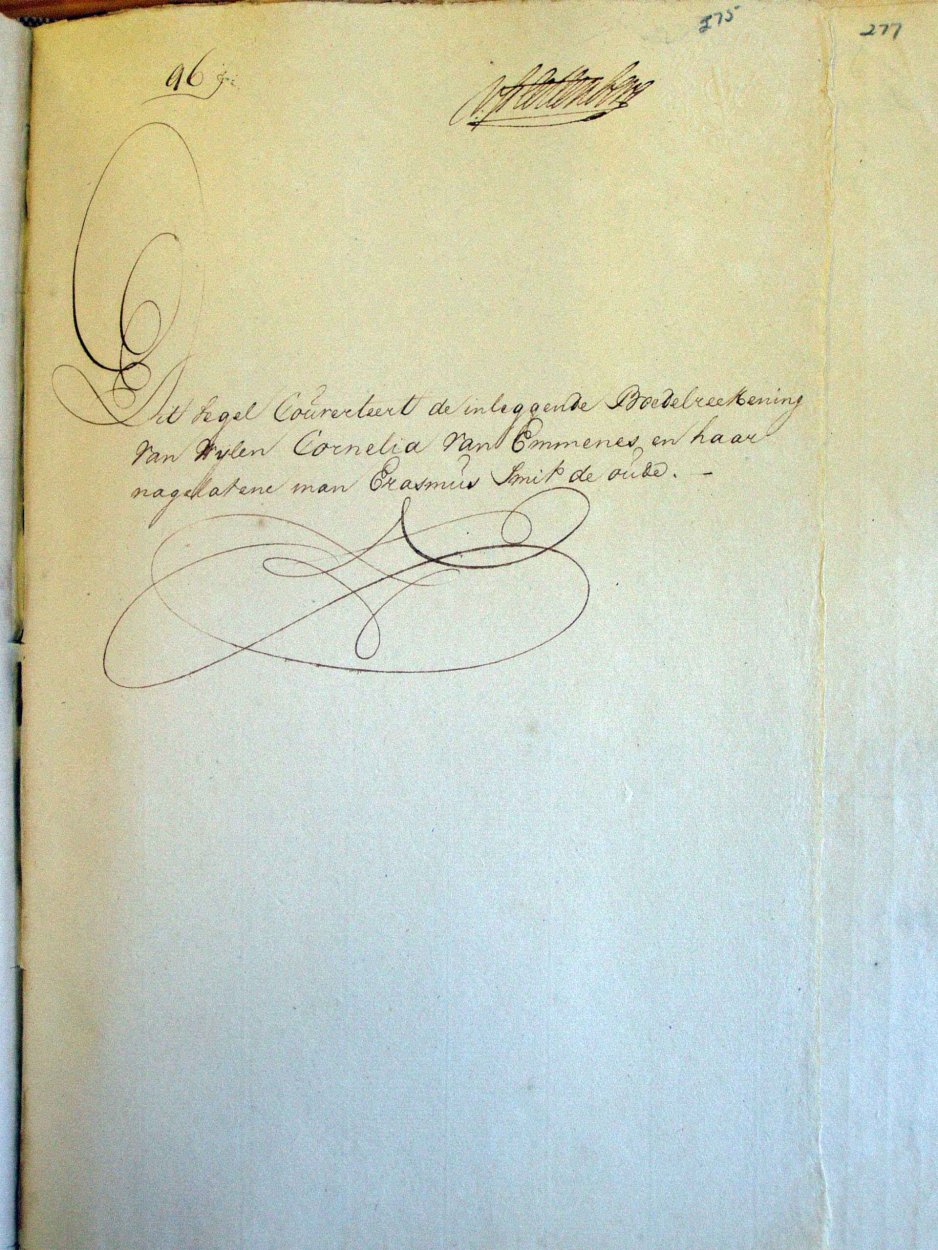 275
277
96
v: Plettenberg
Dit Segel Couverteert de inleggende Boedelreekening
van Wylen Cornelia van Emmenes, en haar
nagelatene man Erasmus Smit de oude. —